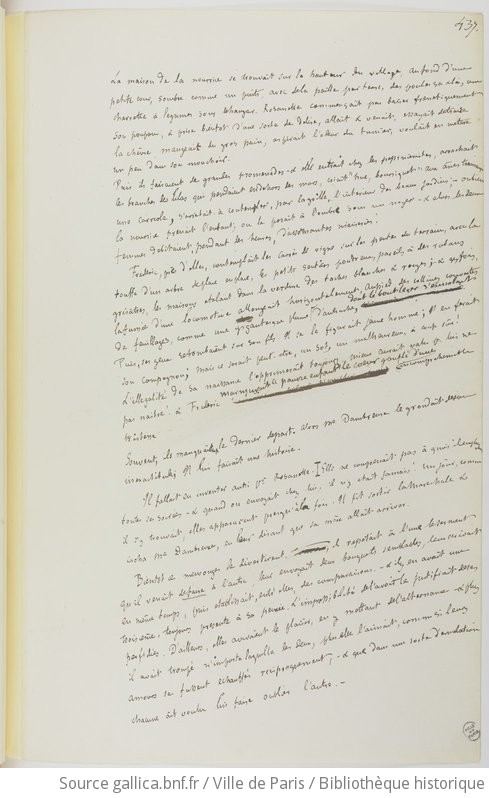 437.
La maison de la nourrice se trouvait sur la hauteur du village, au fond d'une
petite cour, sombre comme un puits, avec de la paille par terre, des poules çà & là, une
charrette à légumes sous le hangar. Rosanette commençait par baiser frénétiquement
son poupon, & prise bientôt d'une sorte de délire, allait & venait, essayait de traire
la chèvre mangeait du gros pain, aspirait l'odeur du fumier, voulait en mettre
un peu dans son mouchoir.
Puis ils faisaient de grandes promenades. & elle entrait chez les pépiniéristes, arrachait
les branches de lilas qui pendaient en dehors des murs, criait "hue, bourriquet" aux ânes traînant
une carriole, s'arrêtait à contempler, par la grille, l'intérieur des beaux jardins; - ou bien
la nourrice prenait l'enfant; on le posait à l'ombre sous un noyer - & alors les deux
femmes débitaient, pendant des heures, d'assommantes niaiseries!
Frédéric, près d'elles, contemplait les carrés de vignes sur les pentes du terrain, avec la
touffe d'un arbre de place en place, les petits sentiers poudreux, pareils à des rubans
grisâtres, les maisons étalant dans la verdure des taches blanches & rouges; - & quelquefois,
la fumée d'une locomotive allongeait horizontalement, au pied des collines couvertes
de feuillages, comme une gigantesque plume d'autruche, dont le bout léger s'envolait
Puis, ses yeux retombaient sur son fils. Il se le figurait jeune homme; Il en ferait
son compagnon; mais ce serait peut-être un sot, un malheureux, à coup sûr!
L'illégalité de sa naissance l'opprimerait toujours; mieux aurait valu pr lui ne
pas naître. & Frédéric murmurait "le pauvre enfant" le cœur gonflé d'une incompréhensible
tristesse
Souvent, ils manquaient le dernier départ. Alors Me Dambreuse le grondait de son
inexactitude; Il lui faisait une histoire.
Il fallait en inventer aussi pr Rosanette. Elle ne comprenait pas à quoi il employait
toutes ses soirées - & quand on envoyait chez lui, il n'y était jamais! Un jour, comme
il s'y trouvait, elles apparurent presqu'à la fois. Il fit sortir la Maréchale &
cacha Me Dambreuse, en leur disant que sa mère allait arriver.
Bientôt ces mensonges le divertirent, il répétait à l'une le serment
qu'il venait de faire à l'autre leur envoyait deux bouquets semblables, leur écrivait
en même temps, puis établissait, entre elles, des comparaisons. - & il y en avait une
troisième toujours présente à sa pensée. L'impossibilité de l'avoir le justifiait de ses
perfidies. D'ailleurs, elles avivaient le plaisir, en y mettant de l'alternance - & plus
il avait trompé n'importe laquelle des deux, plus elle l'aimait, comme si leurs
amours se fussent échauffés réciproquement, - & que dans une sorte d'émulation
chacune eût voulu lui faire oublier l'autre. -
Source gallica.bnf.fr / Ville de Paris / Bibliothèque historique